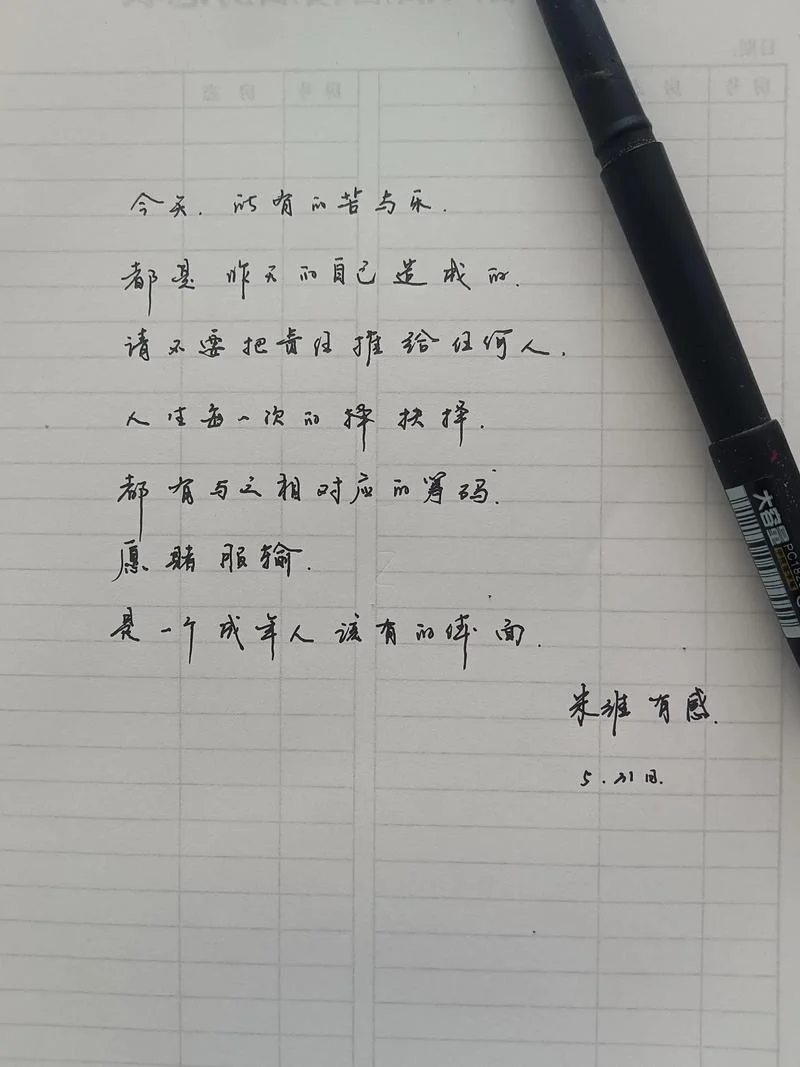 日期:
房号 房态 房号 房态
今天. 所有的苦与乐.
都是昨天的自己造成的.
请不要把责任推给任何人.
人生每一次的择抉择.
都有与之相对应的筹码.
愿赌服输.
是一个成年人该有的体面.
有感.
5.21日.
大容量